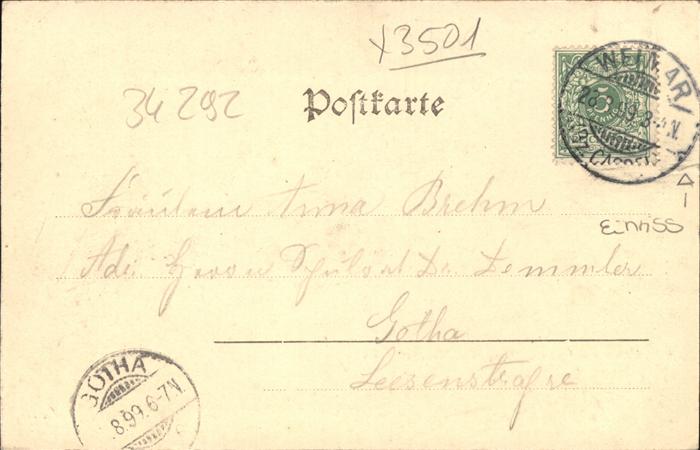 x3501
34292
Postkarte
WEIMAR
5
Fräulein Anna Brehm
Einriss
Adr. Herrn Schulrat Dr. Demmler
Gotha
Leesenstraße
GOTHA
8.99.6-7N.